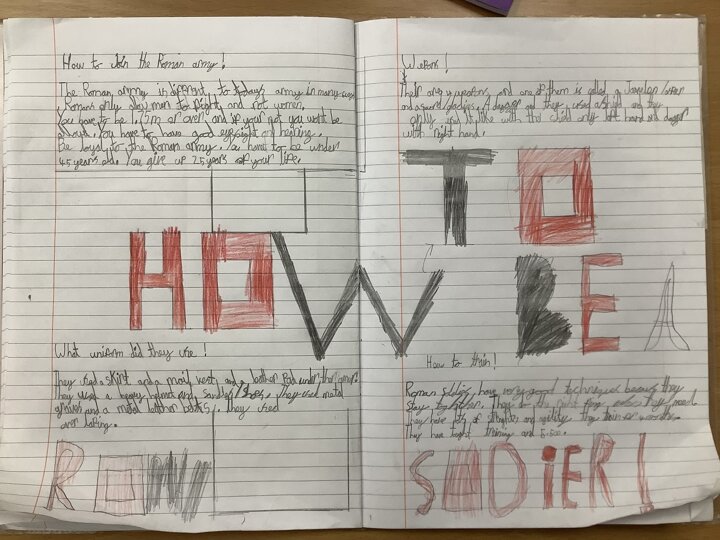 How to Join the Roman army!
The Roman army is different to todays army in many ways
Romans only alow men to fight, and not women.
You have to be 1.75m or over, and if your not you wont be
alowd. You have to have good eyesight an hearing.
Be loyal to the Roman army. You have to be under
45 years old. You give up 25 years of your life.
HOW
What uniform did they use!
They used a skirt and a mail vest, and leather Pads under their armor.
They used a heavy helmet and, Sandles/Shoes. They used metal
greaves and a metal leather belts, They used
ROM
Wepons!
Their are weapons, and one of them is called a Javelin
and a sword/gladius. A dagger and they used a shild and they
only use it like with the shild only left hand and dagger
with right hand.
TO
BE A
How to train!
Roman soldiers have very good techniques because they
stay together. They do the they need.
They have lots of and agility they train
They have taught training and 5,500.
SOlDiER!